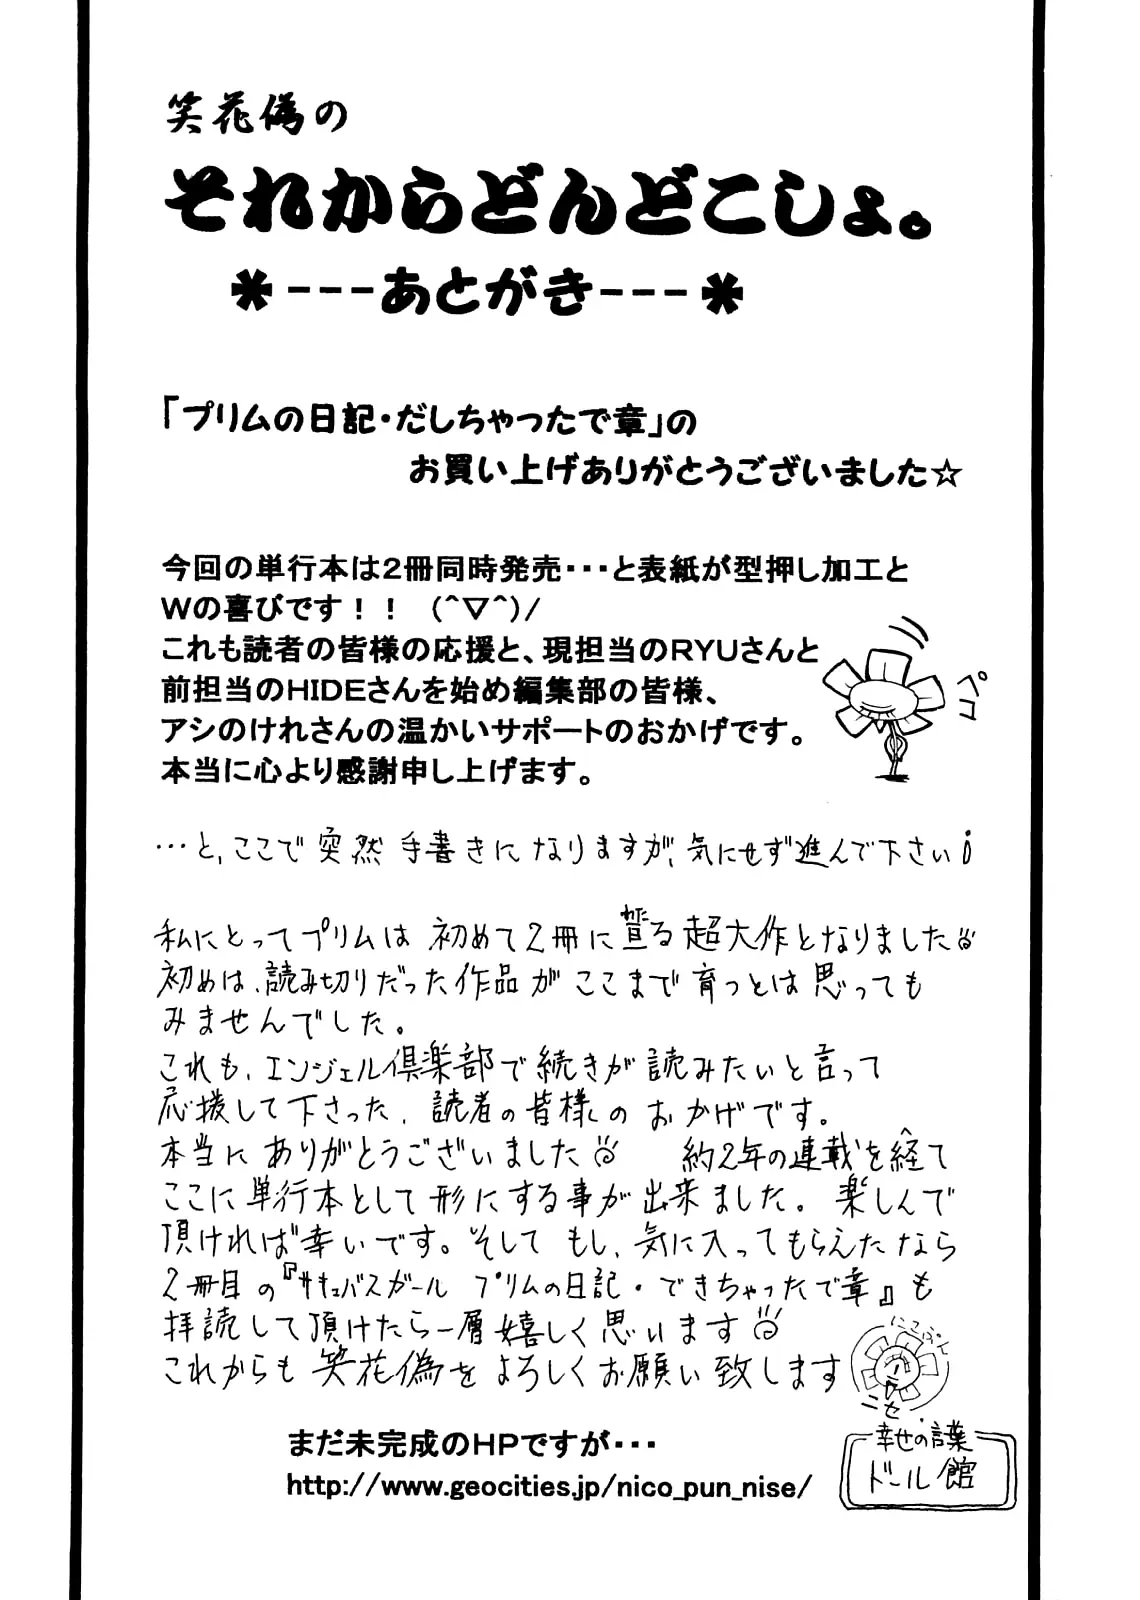 笑花偽の
それからどんどこしょ。
*---あとがき---*
「プリムの日記・だしちゃったで章」の
お買い上げありがとうございました☆
今回の単行本は2冊同時発売・・・と表紙が型押し加工と
Wの喜びです！！ (^▽^)/
これも読者の皆様の応援と、現担当のRYUさんと
前担当のHIDEさんを始め編集部の皆様、
アシのけれさんの温かいサポートのおかげです。
本当に心より感謝申し上げます。
ペコ
…と、ここで突然手書きになりますが、気にせず進んで下さい!
私にとってプリムは初めて2冊に亘る超大作となりました
初めは、読み切りだった作品がここまで育つとは思っても
みませんでした。
これも、エンジェル倶楽部で続きが読みたいと言って
応援して下さった、読者の皆様のおかげです。
本当にありがとうございました 約2年の連載を経て
ここに単行本として形にする事が出来ました。楽しんで
頂ければ幸いです。そしてもし、気に入ってもらえたなら
2冊目の『サキュバスガール プリムの日記・できちゃったで章』も
拝読して頂けたら一層嬉しく思います
これからも笑花偽をよろしくお願い致します
にこぷんニセ
まだ未完成のHPですが・・・
http://www.geocities.jp/nico_pun_nise/
幸せの言葉
ドール館